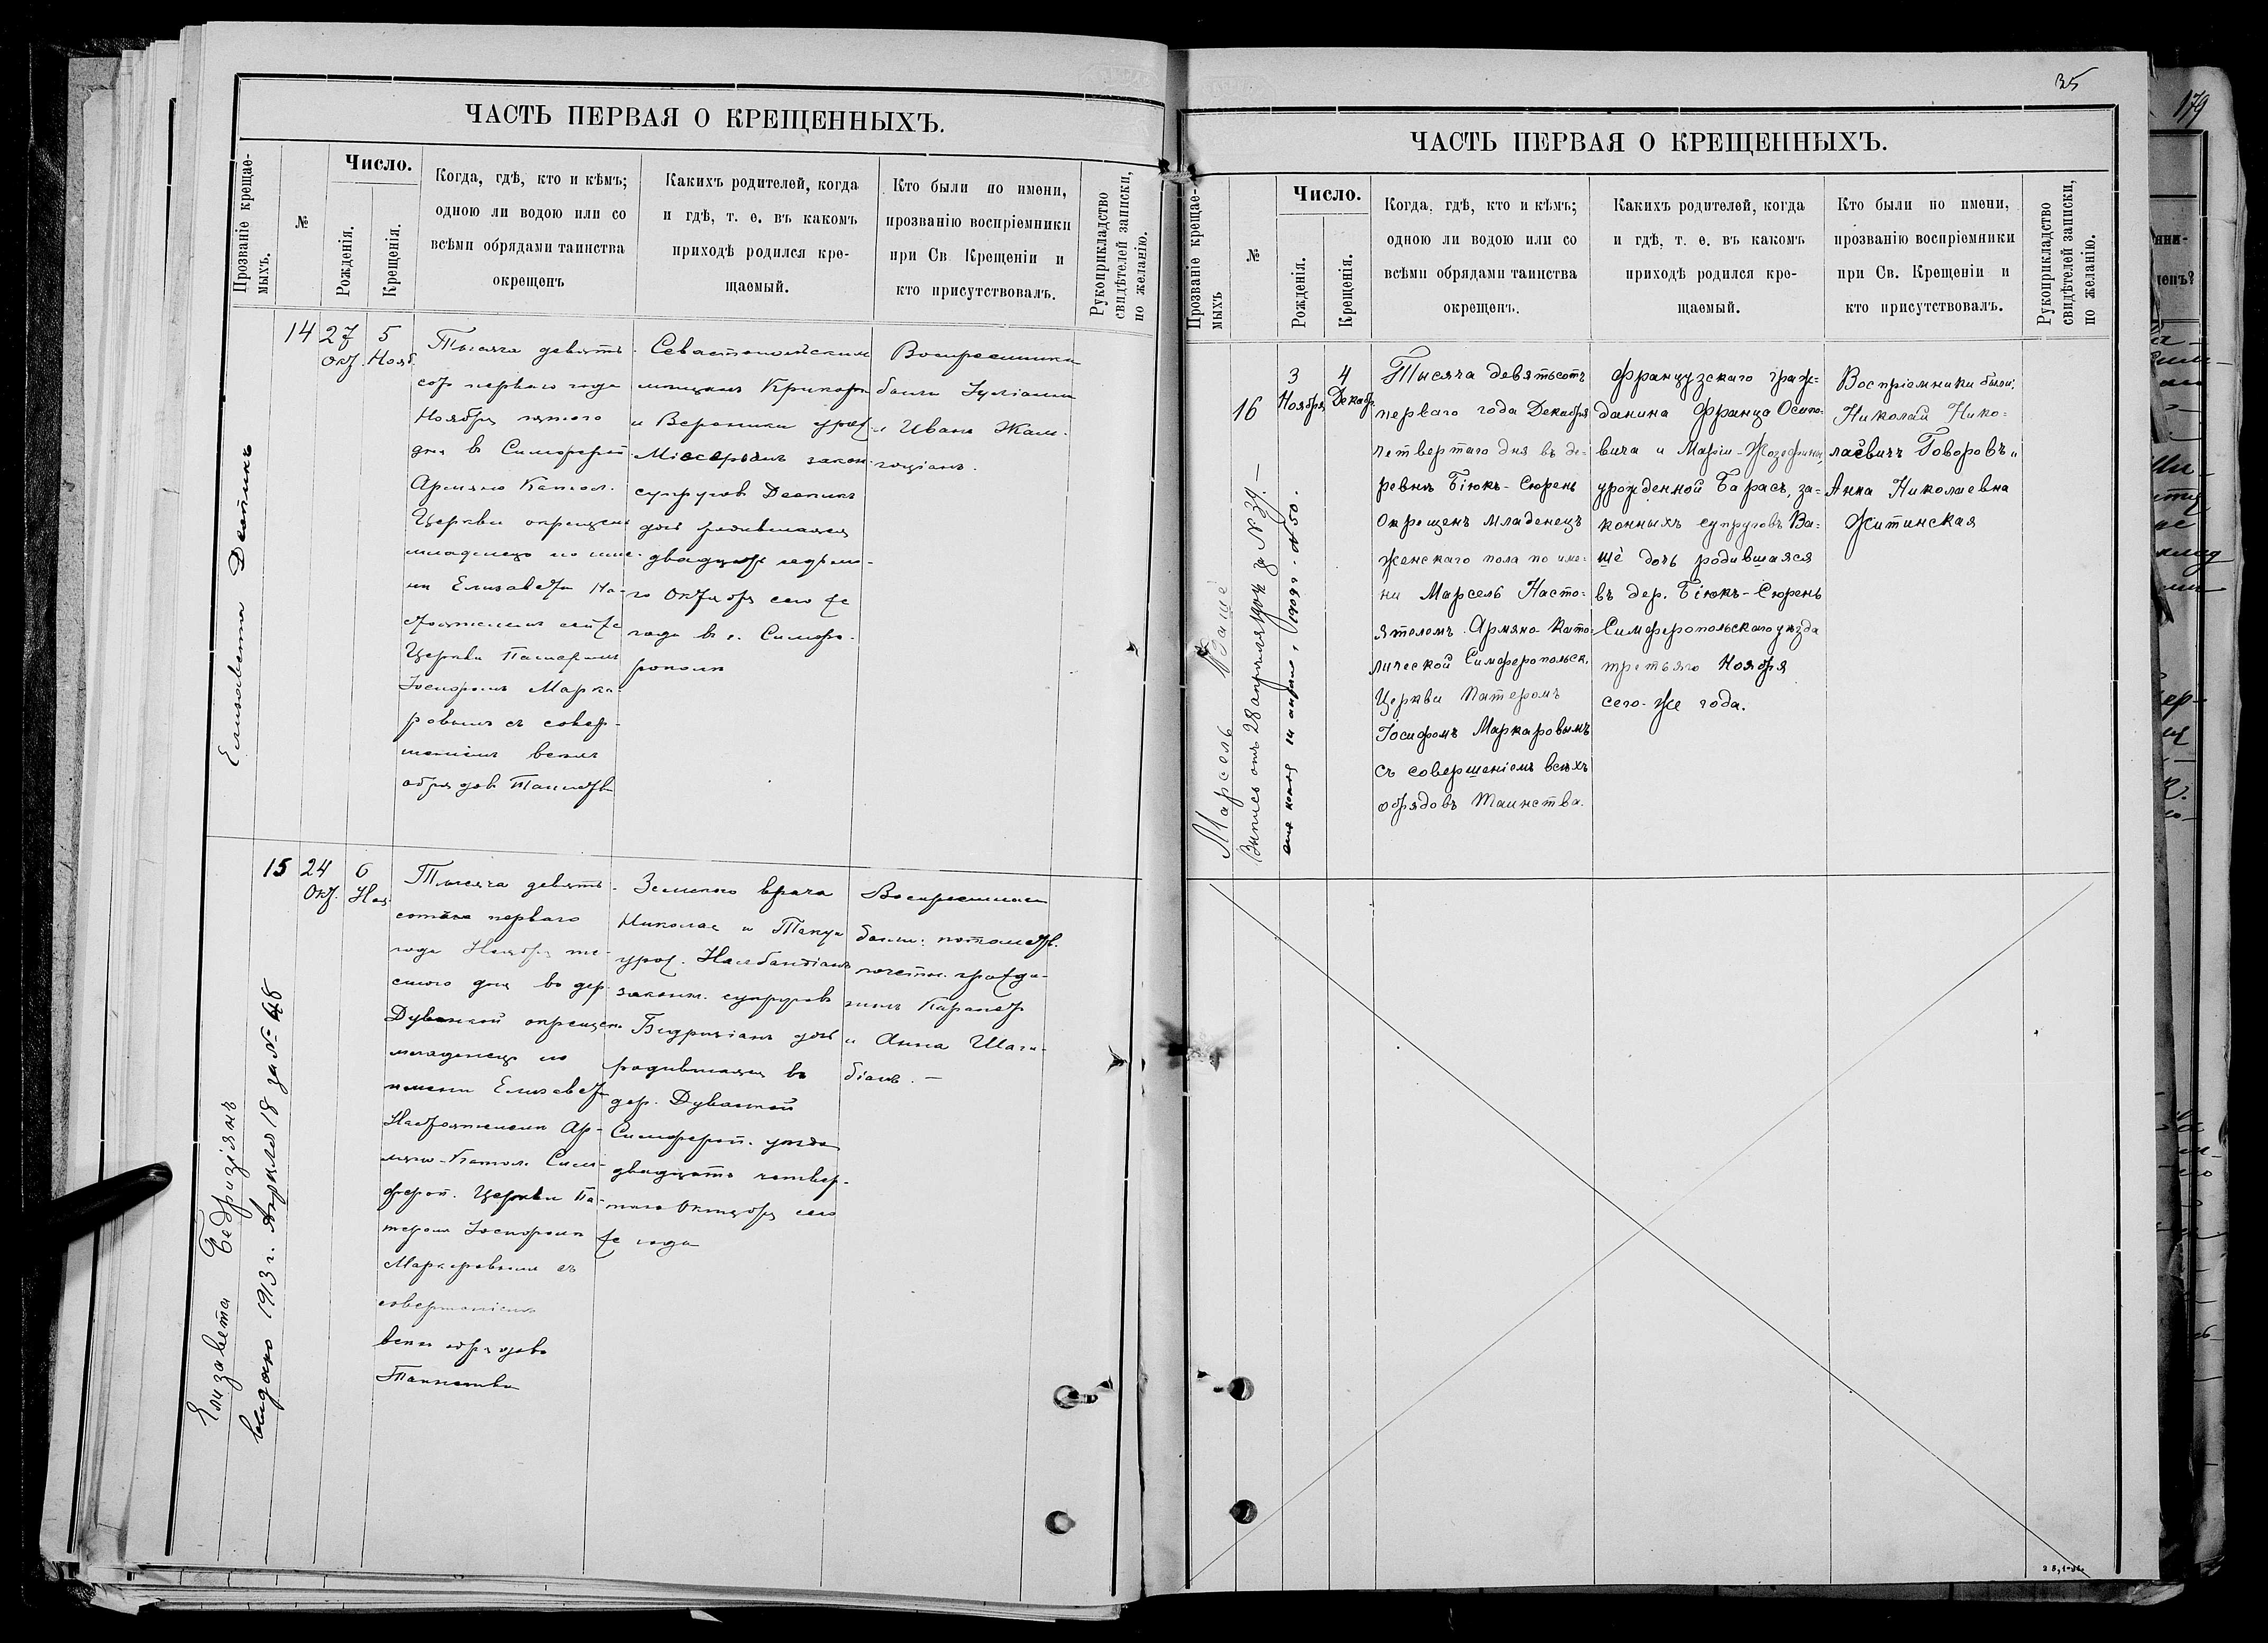 ЧАСТЬ ПЕРВАЯ О КРЕЩЕННЫХЪ.
Прозваніе крещае-
мыхъ.
№
Число.
Рожденія.
Крещенія.
Когда, гдѣ, кто и кѣмъ;
одною ли водою или со
всѣми обрядами таинства
окрещенъ
Какихъ родителей, когда
и гдѣ, т. е. въ какомъ
приходѣ родился кре-
щаемый.
Кто были по имени,
прозванію воспріемники
при Св. Крещеніи и
кто присутствовалъ.
Рукоприкладство
свидѣтелей записки,
по желанію.
Елизавета
14
27
Окт.
5
Нояб.
Тысяча девять-
сот перваго года
Ноября пятого
дня в Симфероп
Армяно Катол.
Церкви окрещенъ
младенец по име-
ни Елизавета На-
стоятелемъ сей же
Церкви Патеромъ
Іосифомъ Марка-
ровымъ съ совер-
шеніемъ всехъ
обрядов Таинств
Севастопольскихъ
мещанъ Крикора
и Вероники урож.
законн
супругов
дочь родившаяся
двадцать седьмо-
го Октября сего же
года в г. Симфе-
рополи
Воспреемники
были Іуліанна
и Иванъ
15
24
Окт.
6
Ноя.
Елизавета Бедризіянъ
выдано 1913 г. Апрѣля 18 за №
Тысяча девять-
сотъ перваго
года Ноября ше-
стого дня во дер.
Дуванкой окрещенъ
младенецъ по
имени Елизавета
Настоятелемъ Ар-
мяно-Катол. Сим-
фероп. Церкви Па-
теромъ Іосифомъ
Маркаровымъ съ
совершеніемъ
всехъ обрядовъ
Таинства
Земского врача
Николая и
урож. Налбандіанъ
законн. супруговъ
Бедризіанъ дочь
родившаяся въ
дер. Дуванкой
Симфероп. уезда
двадцать четвер-
таго Октября сего
же года
Воспреемники
были: потомств.
почетн. гражда-
нинъ Карапетъ
и Анна Шаги-
біанъ. —
35
ЧАСТЬ ПЕРВАЯ О КРЕЩЕННЫХЪ.
Прозваніе крещае-
мыхъ
№
Число.
Рожденія.
Крещенія.
Когда, гдѣ, кто и кѣмъ;
одною ли водою или со
всѣми обрядами таинства
окрещенъ.
Какихъ родителей, когда
и гдѣ, т. е. въ какомъ
приходѣ родился кре-
щаемый.
Кто были по имени,
прозванію воспріемники
при Св. Крещеніи и
кто присутствовалъ.
Рукоприкладство
свидѣтелей записки,
по желанію.
Марсель Ваше
Выпись отъ 28 апрѣля 1904 за № 39. —
14 апрѣля 1909 г. № 50.
16
3
Ноября
4
Декабр.
Тысяча девятьсотъ
перваго года Декабря
четвертаго дня въ де-
ревнѣ Біюкъ-Сюрень
окрещенъ младенецъ
женскаго пола по име-
ни Марсель Насто-
ятелемъ Армяно-Като-
лической Симферопольск.
Церкви Патеромъ
Іосифомъ Маркаровымъ
съ совершеніемъ всѣхъ
обрядовъ Таинства.
Французскаго граж-
данина Франца Осипо-
вича и Маріи-Жозефины,
урожденной Барасъ, за-
конныхъ супруговъ Ва-
ше дочь родившаяся
въ дер. Біюкъ-Сюрень
Симферопольскаго уѣзда
третьяго Ноября
сего-же года.
Воспріемники были:
Николай Нико-
лаевичъ Говоровъ и
Анна Николаевна
Житинская
179